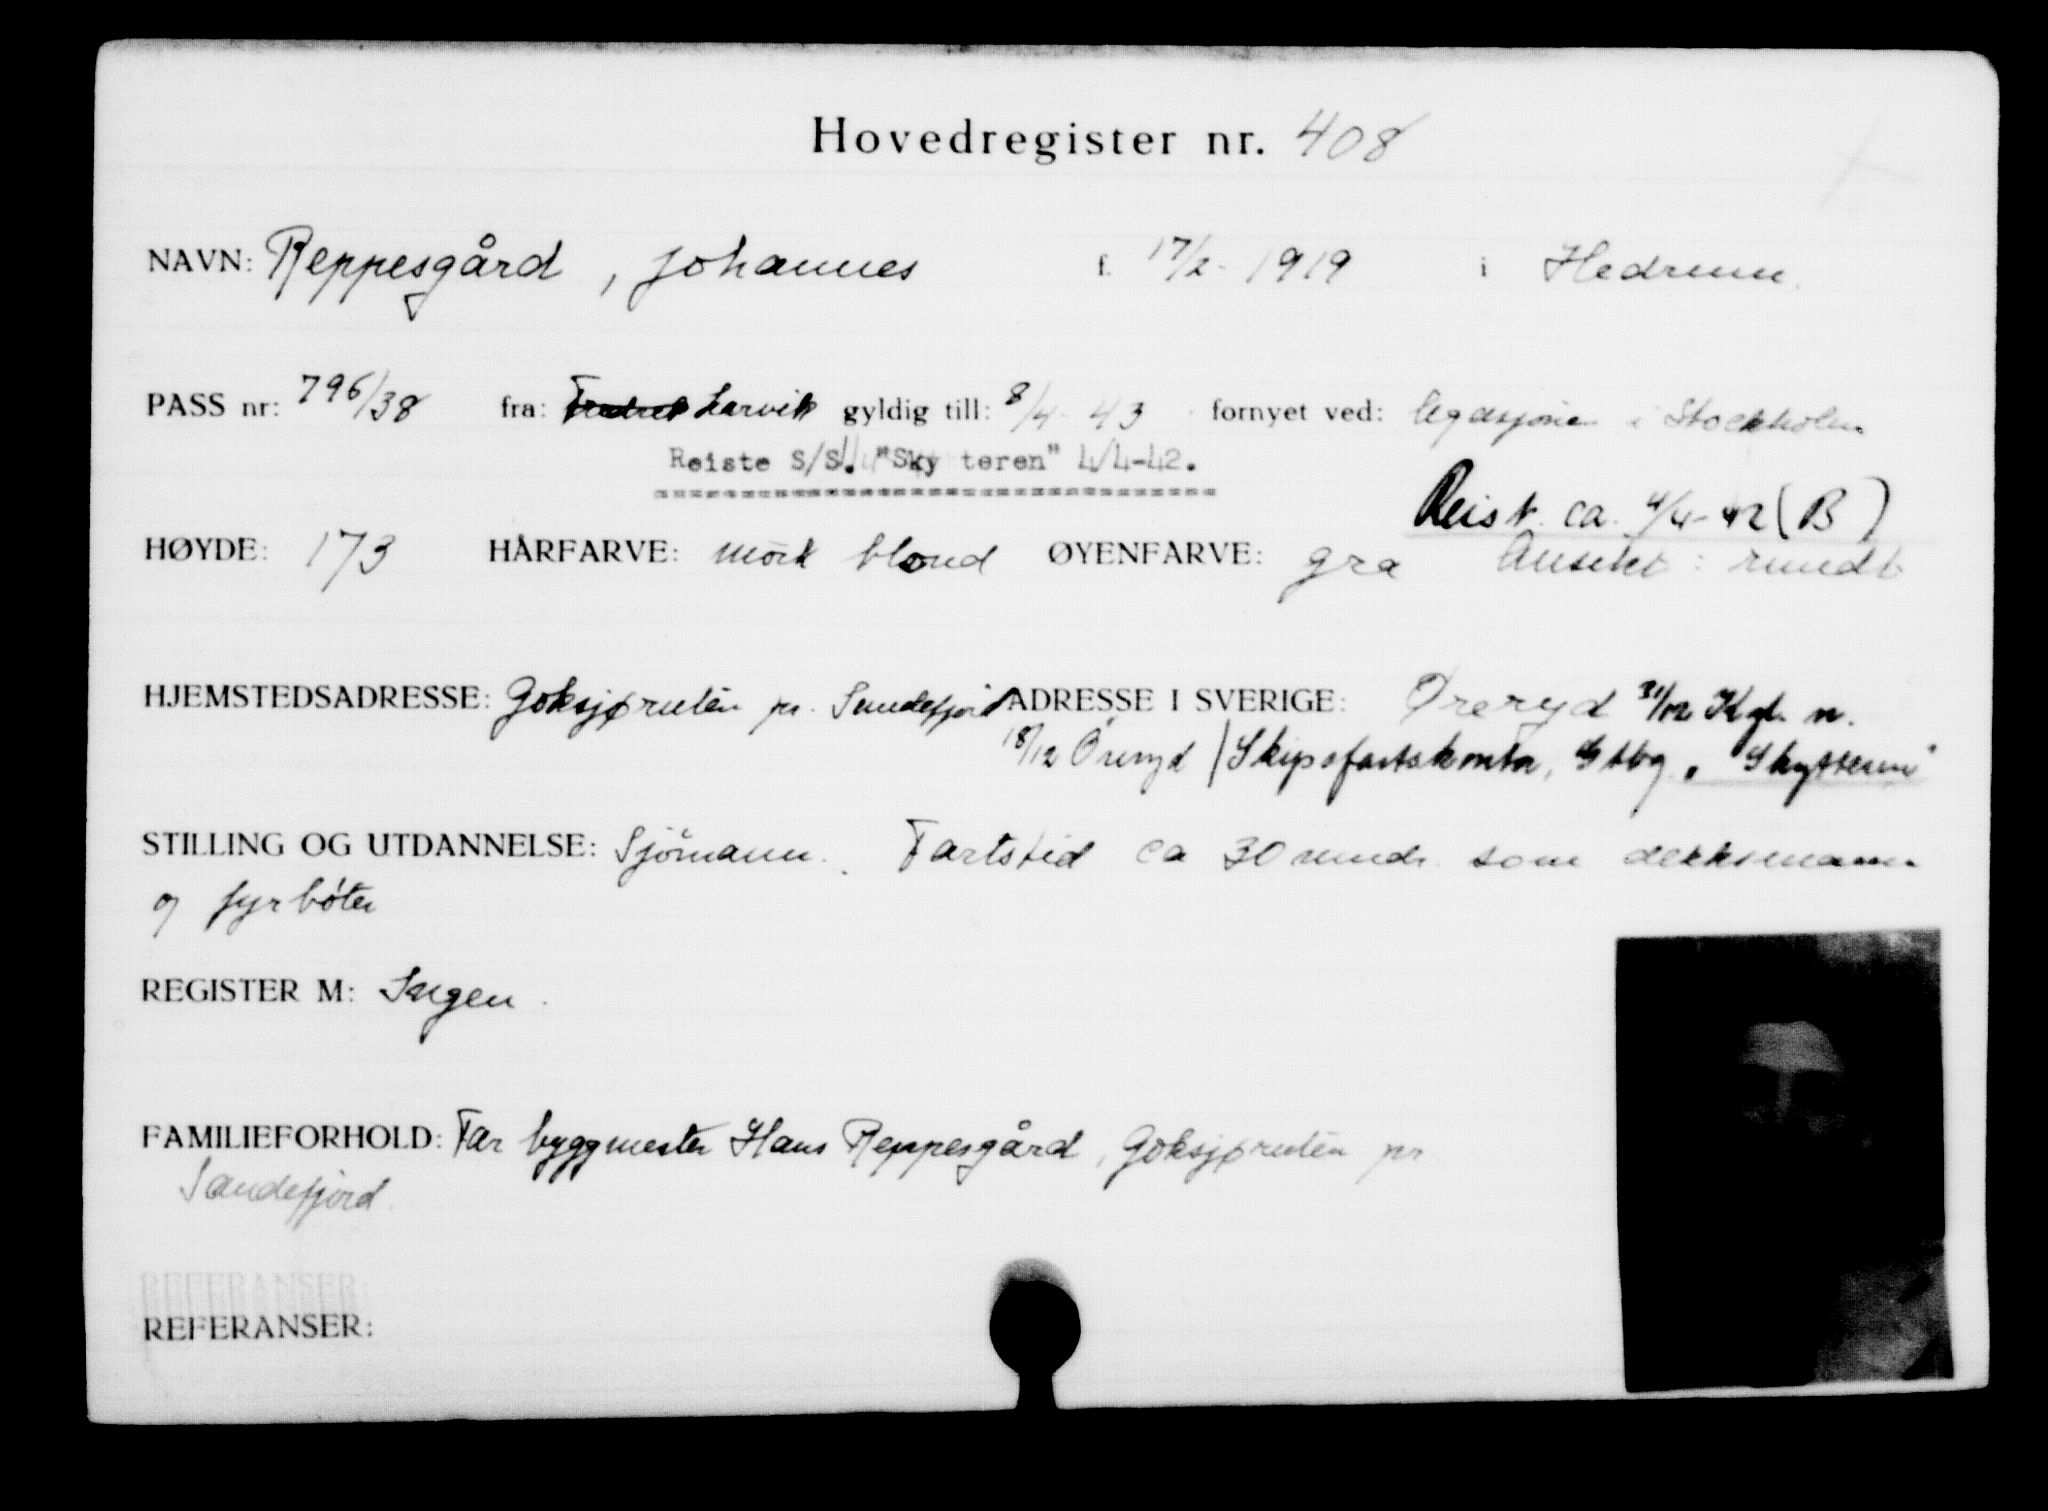 Hovedregister nr. 408
NAVN: Reppesgård, Johannes f. 17/2- 1919 i Hedrum.
PASS nr: 796/38 fra: Larvik gyldig till: 8/4- 43 fornyet ved: legasjonen i Stockholm
Reiste S/S. "Sky teren" 4/4-42.
Reist ca. 4/4-42 (B)
HØYDE: 173 HÅRFARVE: mörk blond ØYENFARVE: grå Ansikt: rundt
HJEMSTEDSADRESSE: Goksjøruten pr. Sandefjord ADRESSE I SVERIGE: Øreryd 31/12 Kgl. n.
18/12 Öreryd / Skipsfartskontor, Gtbg. "Skytteren"
STILLING OG UTDANNELSE: Sjömann. Fartstid ca 30 mndr. som dekksmann
og fyrbøter
REGISTER M: Ingen.
FAMILIEFORHOLD: Far byggmester Hans Reppesgård, Goksjøruten pr
Sandefjord.
REFERANSER:
REFERANSER: